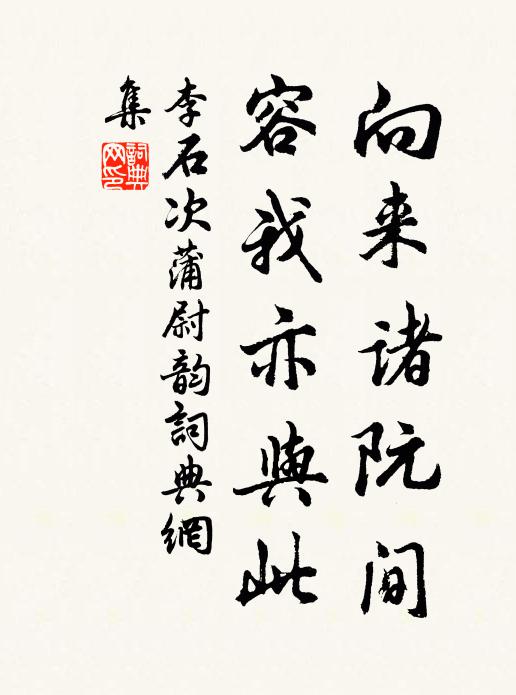 向来诸阮间
容我亦與此
李石次蒲尉韵詞典網
集
詞典网印